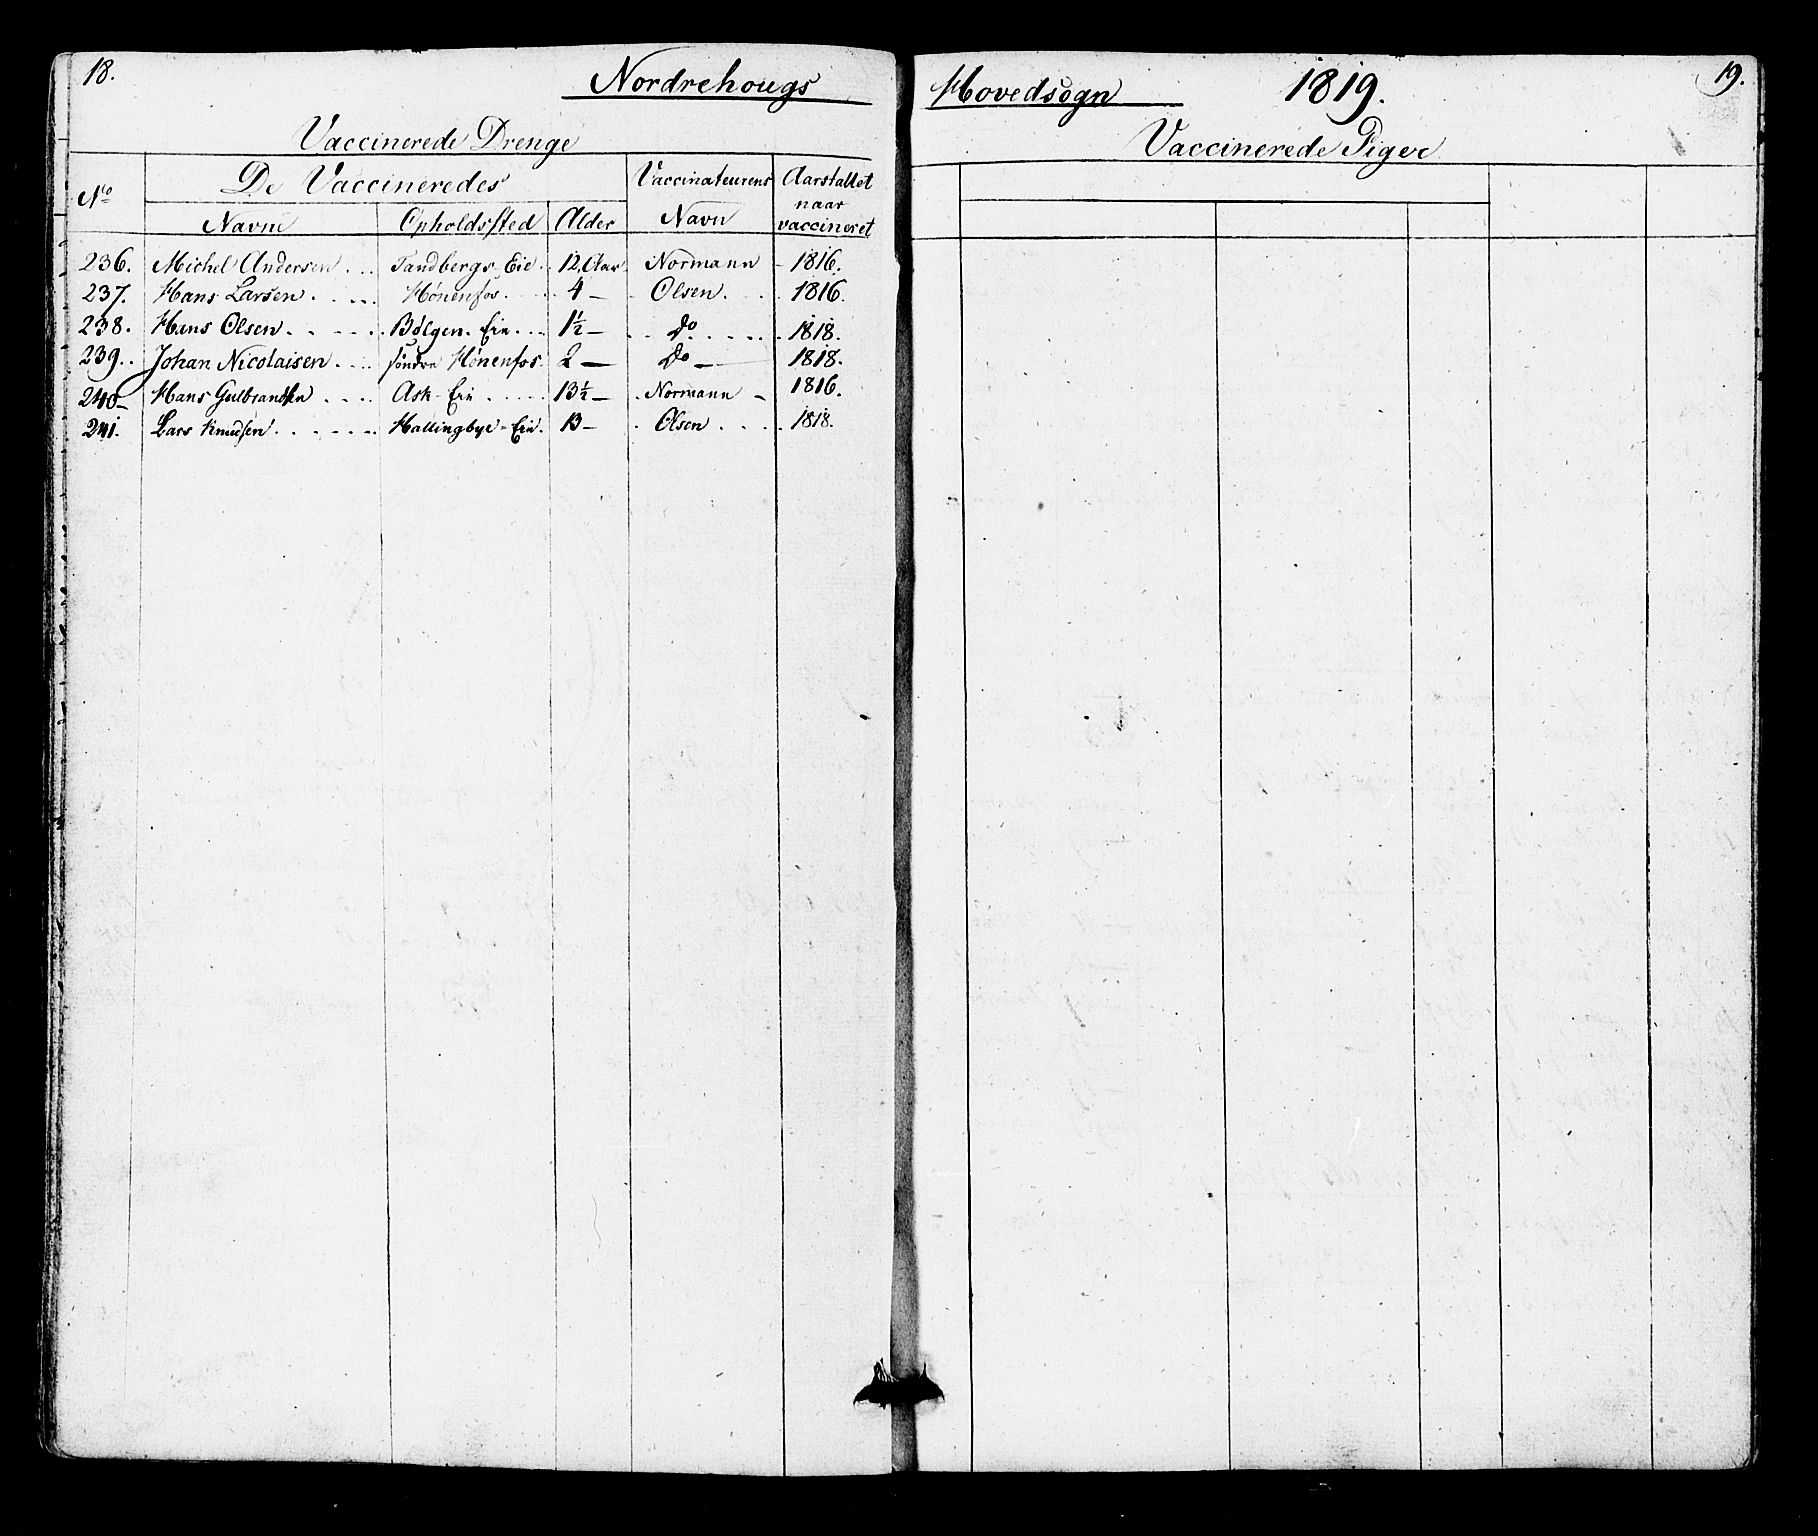 18.
Nordrehougs
Vaccinerede Drenge
No De Vaccineredes Vaccinateurens Navn Aarstallet naar vaccineret
Navne Opholdssted Alder
236. Michel Andersen Tandbergs-Eie 12 Aar Normann 1816.
237. Hans Larsen Hønenfos 4 — Olsen 1816.
238. Hans Olsen Bølgen. Eie 1½ — Do 1818.
239. Johan Nicolaisen søndre Hønenfos 2 — Do — 1818.
240 Hans Gulbrandsen Ask-Eie 13½ — Normann 1816.
241. Lars Knudsen Hallingbye-Eie 13 — Olsen 1818.
Hovedsogn 1819. 19.
Vaccinerede Piger